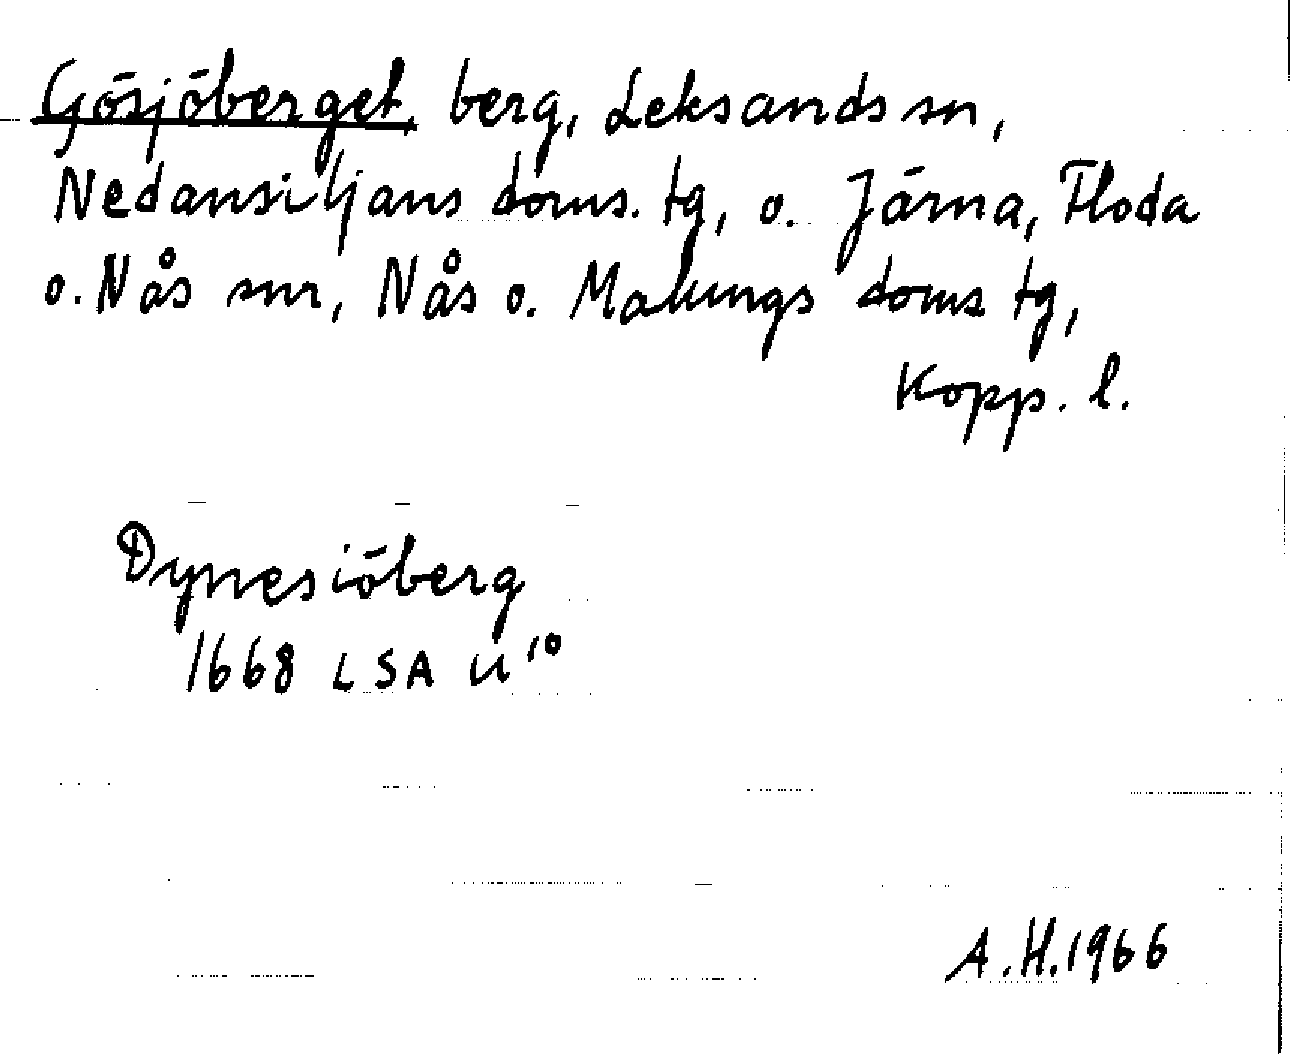 Gösjöberget, berg, Leksands sn,
Nedansiljans doms. tg, o. Järna, Floda
o. Nås snr, Nås o. Malungs doms tg,
Kopp. l.
Dynesiöberg
1668 LSA U 10
A.H. 1966